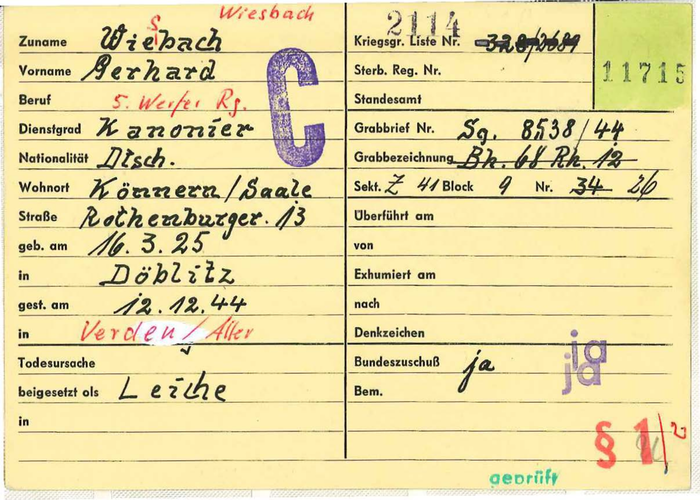 Wiesbach
Zuname Wiebach
s
Vorname Gerhard
Beruf 5. Werfer Rg.
Dienstgrad Kanonier
C
Nationalität Dtsch.
Wohnort Könnern/Saale
Straße Rothenburger. 13
geb. am 16. 3. 25
in Döblitz
gest. am 12.12.44
in Verden / Aller
Todesursache
beigesetzt als Leiche
in
2114
Kriegsgr. Liste Nr. 328/2689
11715
Sterb. Reg. Nr.
Standesamt
Grabbrief Nr. Sg. 8538/44
Grabbezeichnung Bh. 68 Rh. 12
Sekt. Z 41 Block 9 Nr. 34 26
Überführt am
von
Exhumiert am
nach
Denkzeichen
Bundeszuschuß ja
ja
ja
Bem.
§ 1/2
geprüft